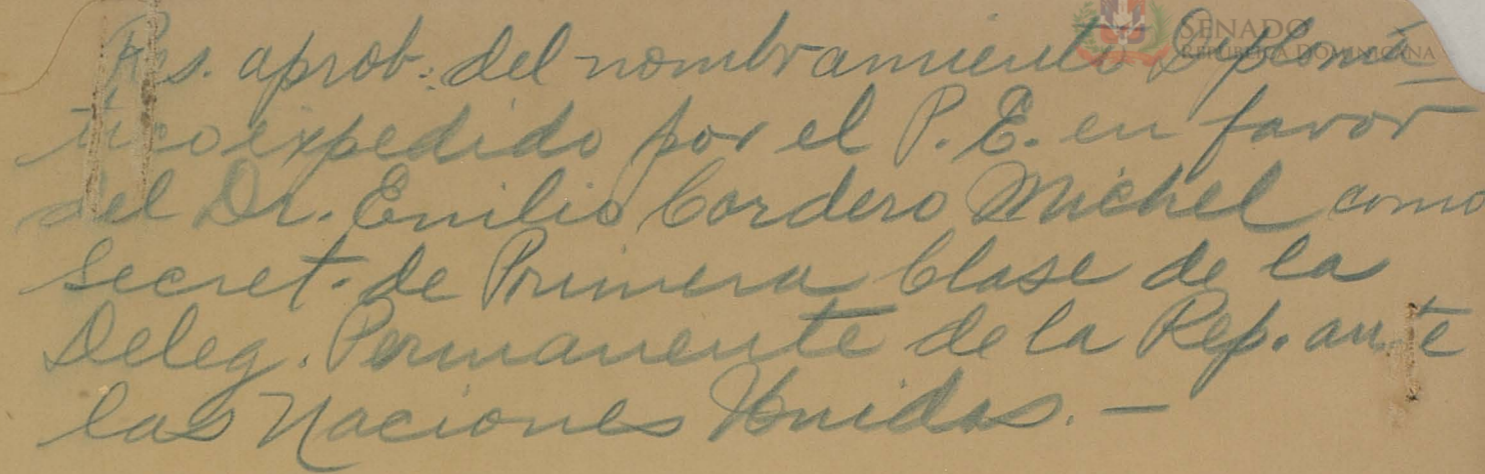 SENADO
REPÚBLICA DOMINICANA
Res. aprob. del nombramiento diplomá-
tico expedido por el P. E. en favor
del Dr. Emilio Cordero Michel como
Secret. de Primera Clase de la
Deleg. Permanente de la Rep. ante
las Naciones Unidas.—